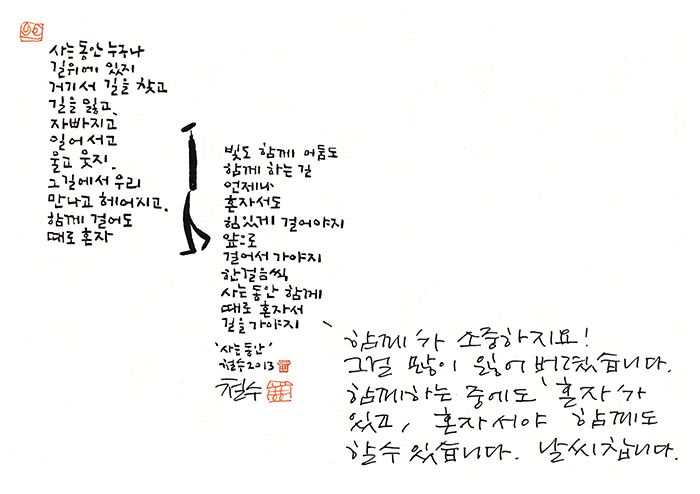 사는동안 누구나
길위에 있지
거기서 길을 찾고
길을 잃고,
자빠지고,
일어서고
울고 웃지.
그길에서 우리
만나고 헤어지고.
함께 걸어도
때로 혼자
빛도 함께 어둠도
함께 하는 길
언제나
혼자서도
힘있게 걸어야지
앞으로
걸어서 가야지
한걸음씩,
사는동안 함께
때로 혼자서
길을가야지
'사는동안'
철수2013
철수
함께'가 소중하지요!
그걸 많이 잃어버렸습니다.
함께하는 중에도 '혼자'가
있고, 혼자서야 함께도
할수있습니다. 날씨찹니다.